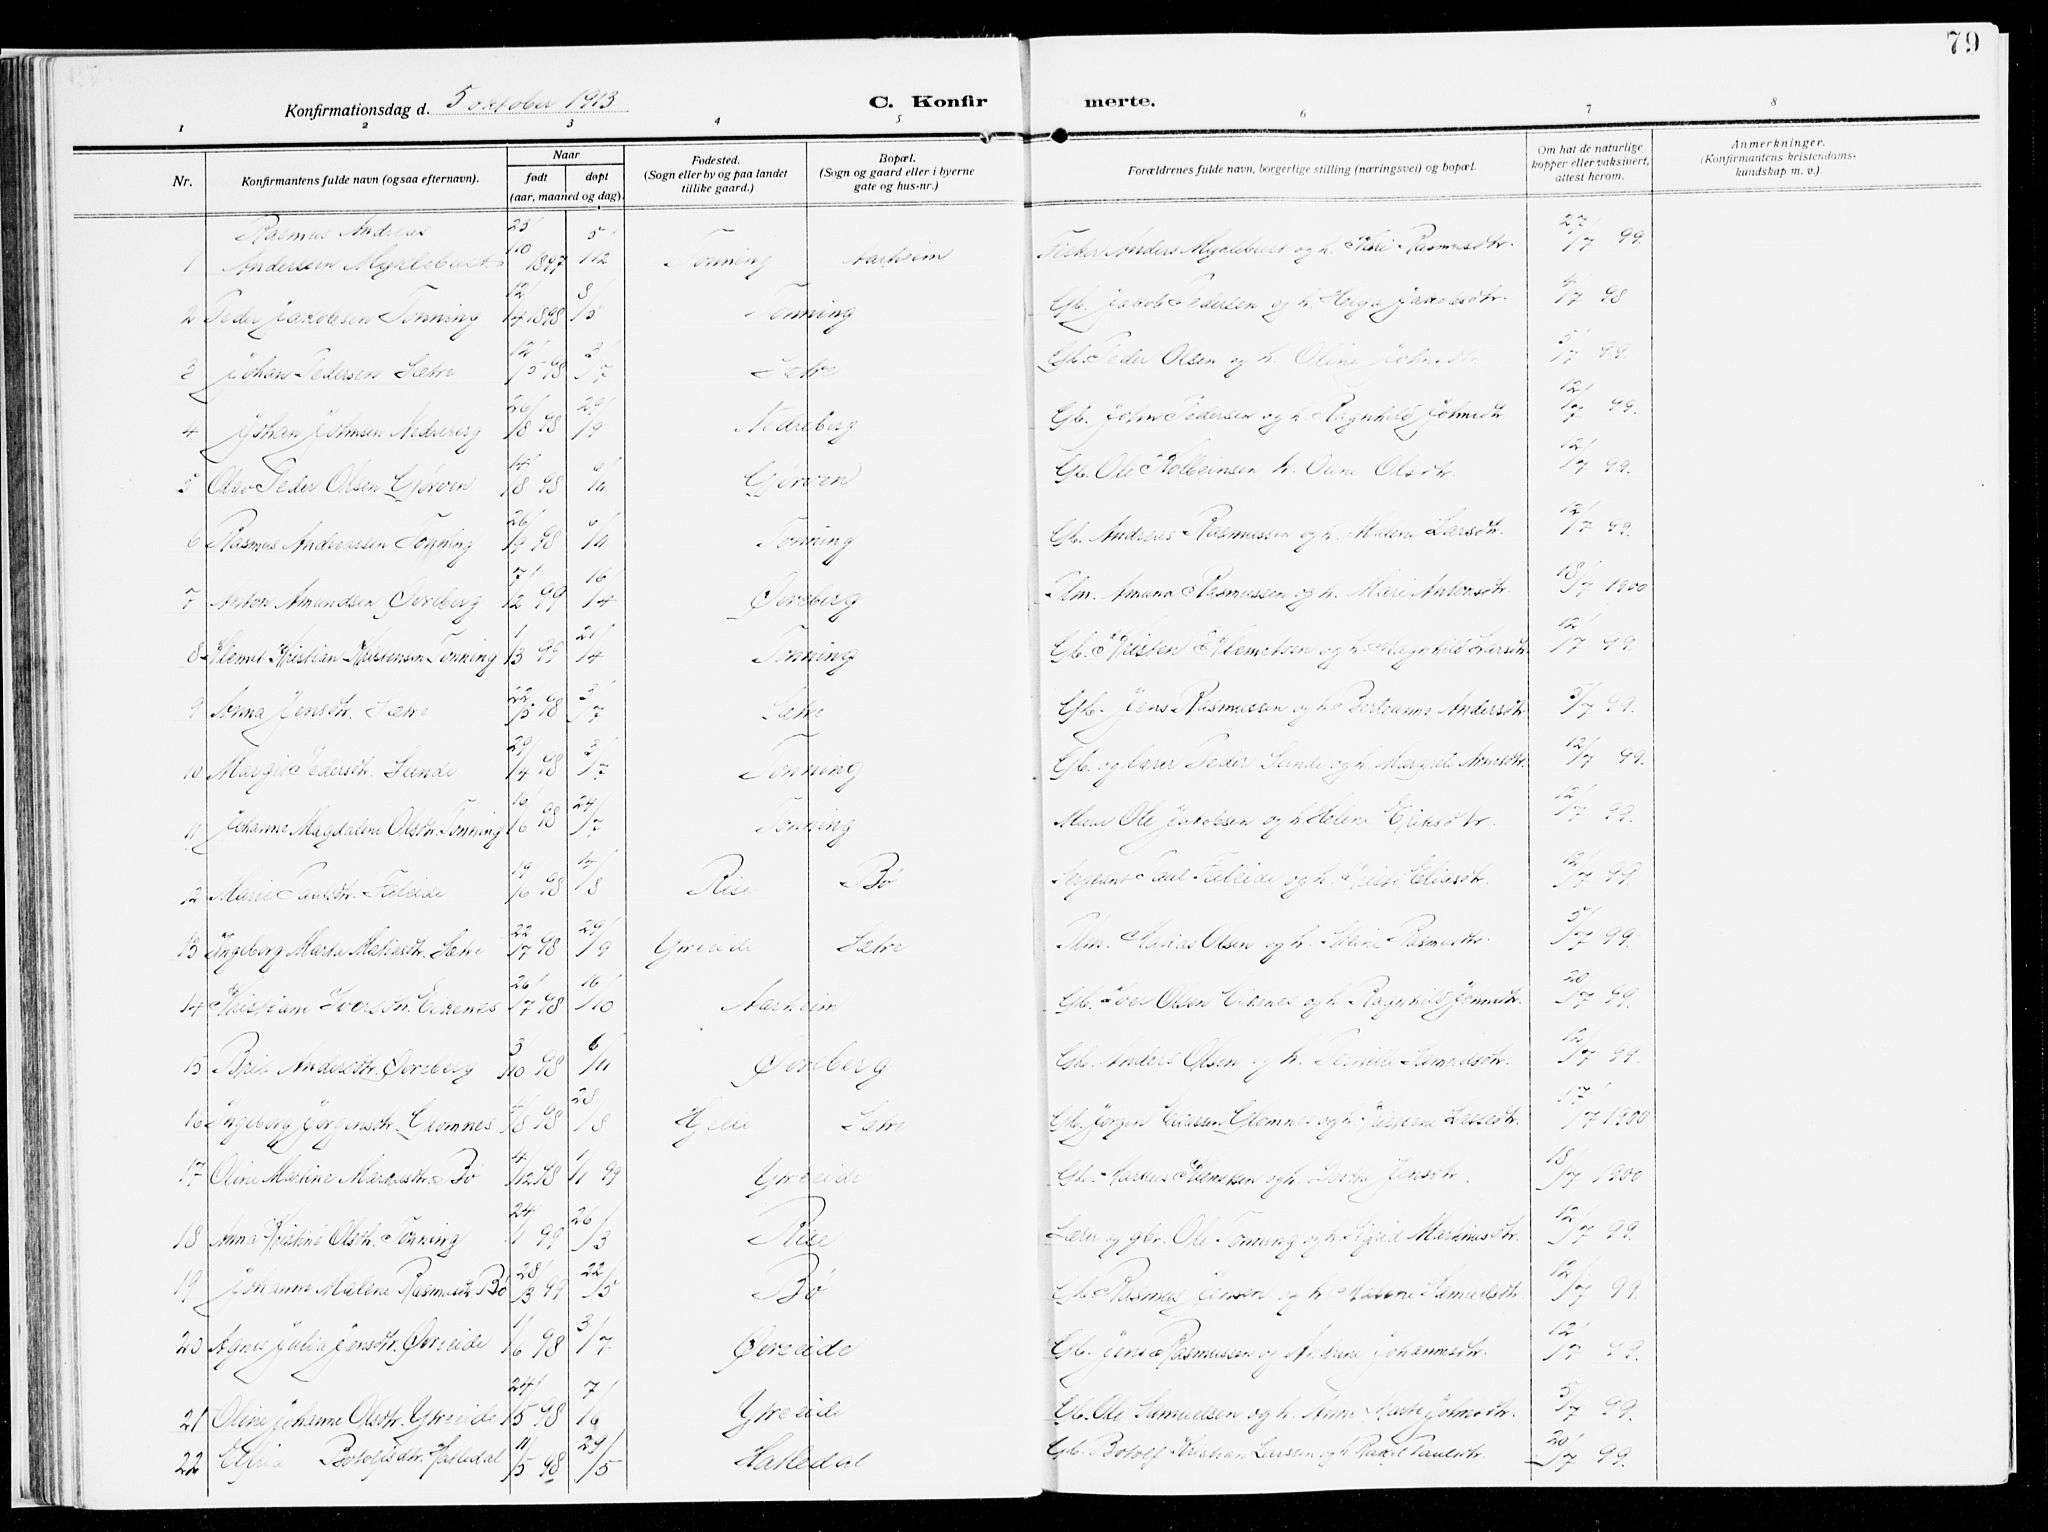 79
Konfirmationsdag d. 5 oktober 1913
C. Konfirmerte.
1 2 3 4 5 6 7 8
Nr.
Konfirmantens fulde navn (ogsaa efternavn).
Naar
født døpt
(aar, maaned og dag).
Fødested.
(Sogn eller by og paa landet
tillike gaard.)
Bopæl.
(Sogn og gaard eller i byerne
gate og hus-nr.)
Forældrenes fulde navn, borgerlige stilling (næringsvei) og bopæl.
Om hat de naturlige
kopper eller vaksinert,
attest herom.
Anmerkninger.
(Konfirmantens kristendoms-
kundskap m. v.)
Rasmus Andreas
1 Andersen Myklebust 25/10 1897 5/12 Tonning Aarheim Anders Myklebust og h. Kari Rasmusdtr. 27/7 99.
2 Peder Jakobsen Tonning 12/4 1898 8/5 Tonning Gb. Jakob Pedersen og h. Helga Jakobsdtr. 4/7 98
3 Johan Pedersen Sætre 12/5 98 3/7 Sætre Gb. Peder Olsen og h. Oline 5/7 99.
4 Johan Johnsen Nedreberg 26/8 98 29/9 Nedreberg Gb. John Pedersen og h. Ragnhild Johnsdtr. 12/7 99.
5 Olav Peder Olsen Gjørven 14/8 98 6/11 Gjørven Gb. Ole Kolbeinsen h. Oline Olsdtr. 12/7 99.
6 Rasmus Andreassen Tonning 26/9 98 6/11 Tonning Gb. Andreas Rasmussen og h. Malene Larsdtr. 12/7 99.
7 Anton Amundsen Øvreberg 7/2 99 16/4 Øvreberg Plm. Amund Rasmussen og h. Mari Antonsdtr. 18/7 1900
8 Klemet Kristian Kristensen Tonning 1/3 99 21/4 Tonning Gb. Kristen Klemetsen og h. Magnhild Larsdtr. 12/7 99.
9 Anna Jensdtr. Sætre 22/5 98 3/7 Sætre Gb. Jens Rasmussen og h. Berteanne Andersdtr. 5/7 99.
10 Margit Pedersdtr. Sunde 29/4 98 3/7 Tonning Gb. og lærer Peder Sunde og h. Margrete Arnesdtr. 12/7 99.
11 Johanne Magdalene Olsdtr. Tonning 16/6 98 24/7 Tonning Ole Jakobsen og h. Helene Eriksdtr. 12/7 99.
12 Marie Paulsdtr. Faleide 19/6 98 Rise Bø Sergeant Paul Faleide og h. Eliasdtr. 12/7 99.
13 Ingeborg Marta Matiasdtr. Sætre 22/7 98 29/9 Yreeide Sætre Plm. Matias Olsen og h. Rasmusdtr. 5/7 99.
14 Kristiane Iversdtr. Eikenes 26/7 98 16/10 Aarheim Gb. Iver Olsen Eikenes og h. Ragnhild Jonnsdtr. 20/7 99.
15 Brit Andersdtr. Øvreberg 3/10 98 6/11 Øvreberg Gb. Anders Olsen og h. Pernille Samuelsdtr. 12/7 99.
16 Ingeborg Jørgensdtr. Glomnes 98 28/8 Hjelle Sætre Gb. Jørgen Eliassen Glomnes og h. Lassedtr. 17/7 1900
17 Oline Martine Markusdtr. Bø 4/12 98 1/1 99 Yreeide Gb. Markus Klemetsen og h. Jensdtr. 18/7 1900
18 Anna Kristine Olsdtr. Tonning 24/1 99 26/3 Rise Lærer og gbr. Ole Tonning og h. Sigrid Markusdtr. 12/7 99.
19 Johanne Malene Rasmusdtr. Bø 28/3 99 22/5 Bø Gb. Rasmus Jensen og h. Malene Samuelsdtr. 12/7 99.
20 Agnes Julia Jensdtr. Øvreeide 1/6 98 3/7 Øvreeide Gb. Jens Rasmussen og Andrine Johannesdtr. 12/7 99.
21 Oline Johanne Olsdtr. Yreeide 24/5 98 7/6 Yreeide Gb. Ole Samuelsen og h. Anne Marte Johnsdtr. 5/7 99.
22 Elfrid Botolfsdtr. Hatledal 11/5 98 29/5 Hatledal Gb. Botolf Kristian Larssen og h. Rakel Paulsdtr. 20/7 99.